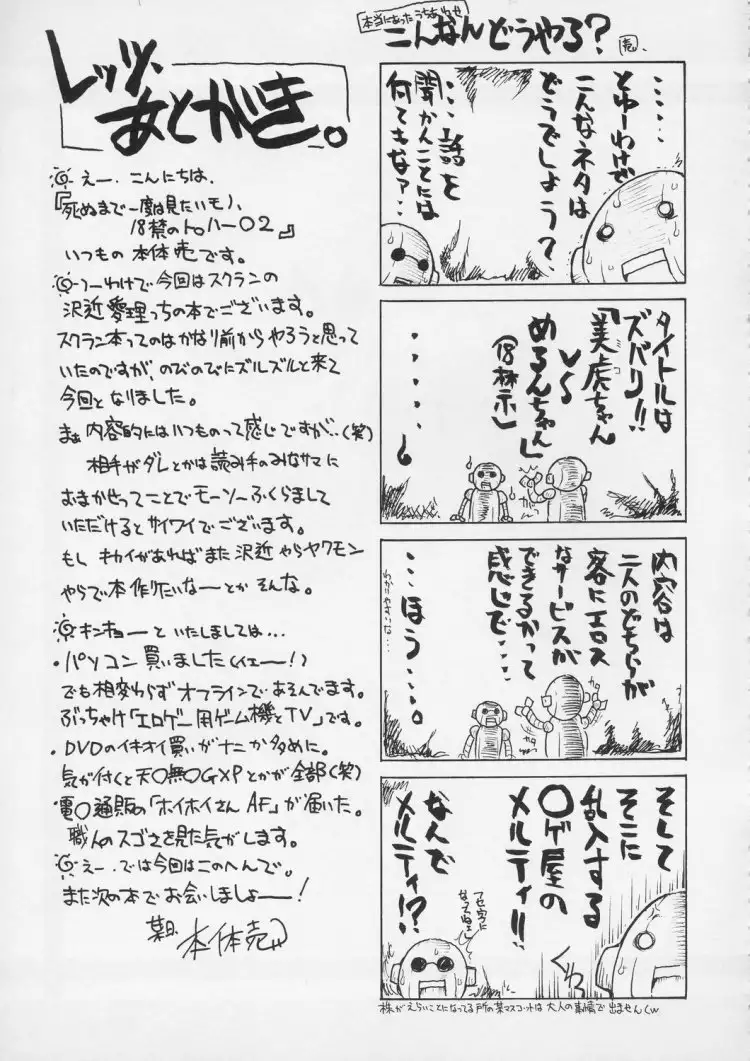 本当にあったうちあわせ
こんなんどうやろ?
売.
・・・・・
とゆーわけで
こんなネタは
どうでしょう?
・・・話を
聞かんことには
何ともなァ・・
タイトルは
ズバリ!!
『美虎ちゃん
ミコ
VS
めるんちゃん』
(18禁)
・・・・・
内容は
二人のどちらが
客にエロス
なサービスが
できるかって
感じで・・・・
・・・ほう・・・。
わかりやすいな・・・
そして
そこに
乱入する
〇ゲ屋の
メルティ!!
くわっ
なんで
メルティ!?
フセ字に
なってねェし
株がえらいことになってる所の某マスコットは大人の事情で出ませんw
レッツ、
あとがき。
えー、こんにちは、
『死ぬまで一度は見たいモノ、
18禁のトゥハーO2』
いつもの本体売です。
つーわけで今回はスクランの
沢近愛理っちの本でございます。
スクラン本ってのはかなり前からやろうと思って
いたのですが、のびのびにズルズルと来て
今回となりました。
まぁ内容的にはいつものって感じですが‥(笑)
相手がダレとかは読み手のみなサマに
おまかせってことでモーソーふくらまして
いただけるとサイワイでございます。
もし キカイがあればまた沢近やらヤクモン
やらで本作りたいなーとかそんな。
キンキョーといたしましては…
・パソコン買いました(イエー!)
でも相変わらずオフラインであそんでます。
ぶっちゃけ「エロゲー用ゲーム機とTV」です。
・DVDのイキオイ買いがナニか多めに。
気が付くと天〇無〇GXPとかが全部(笑)
・電〇通販の「ホイホイさんAF」が届いた。
職人のスゴさを見た気がします。
えー、では今回はこのへんで。
また次の本でお会いしましょー!
某日. 本体売